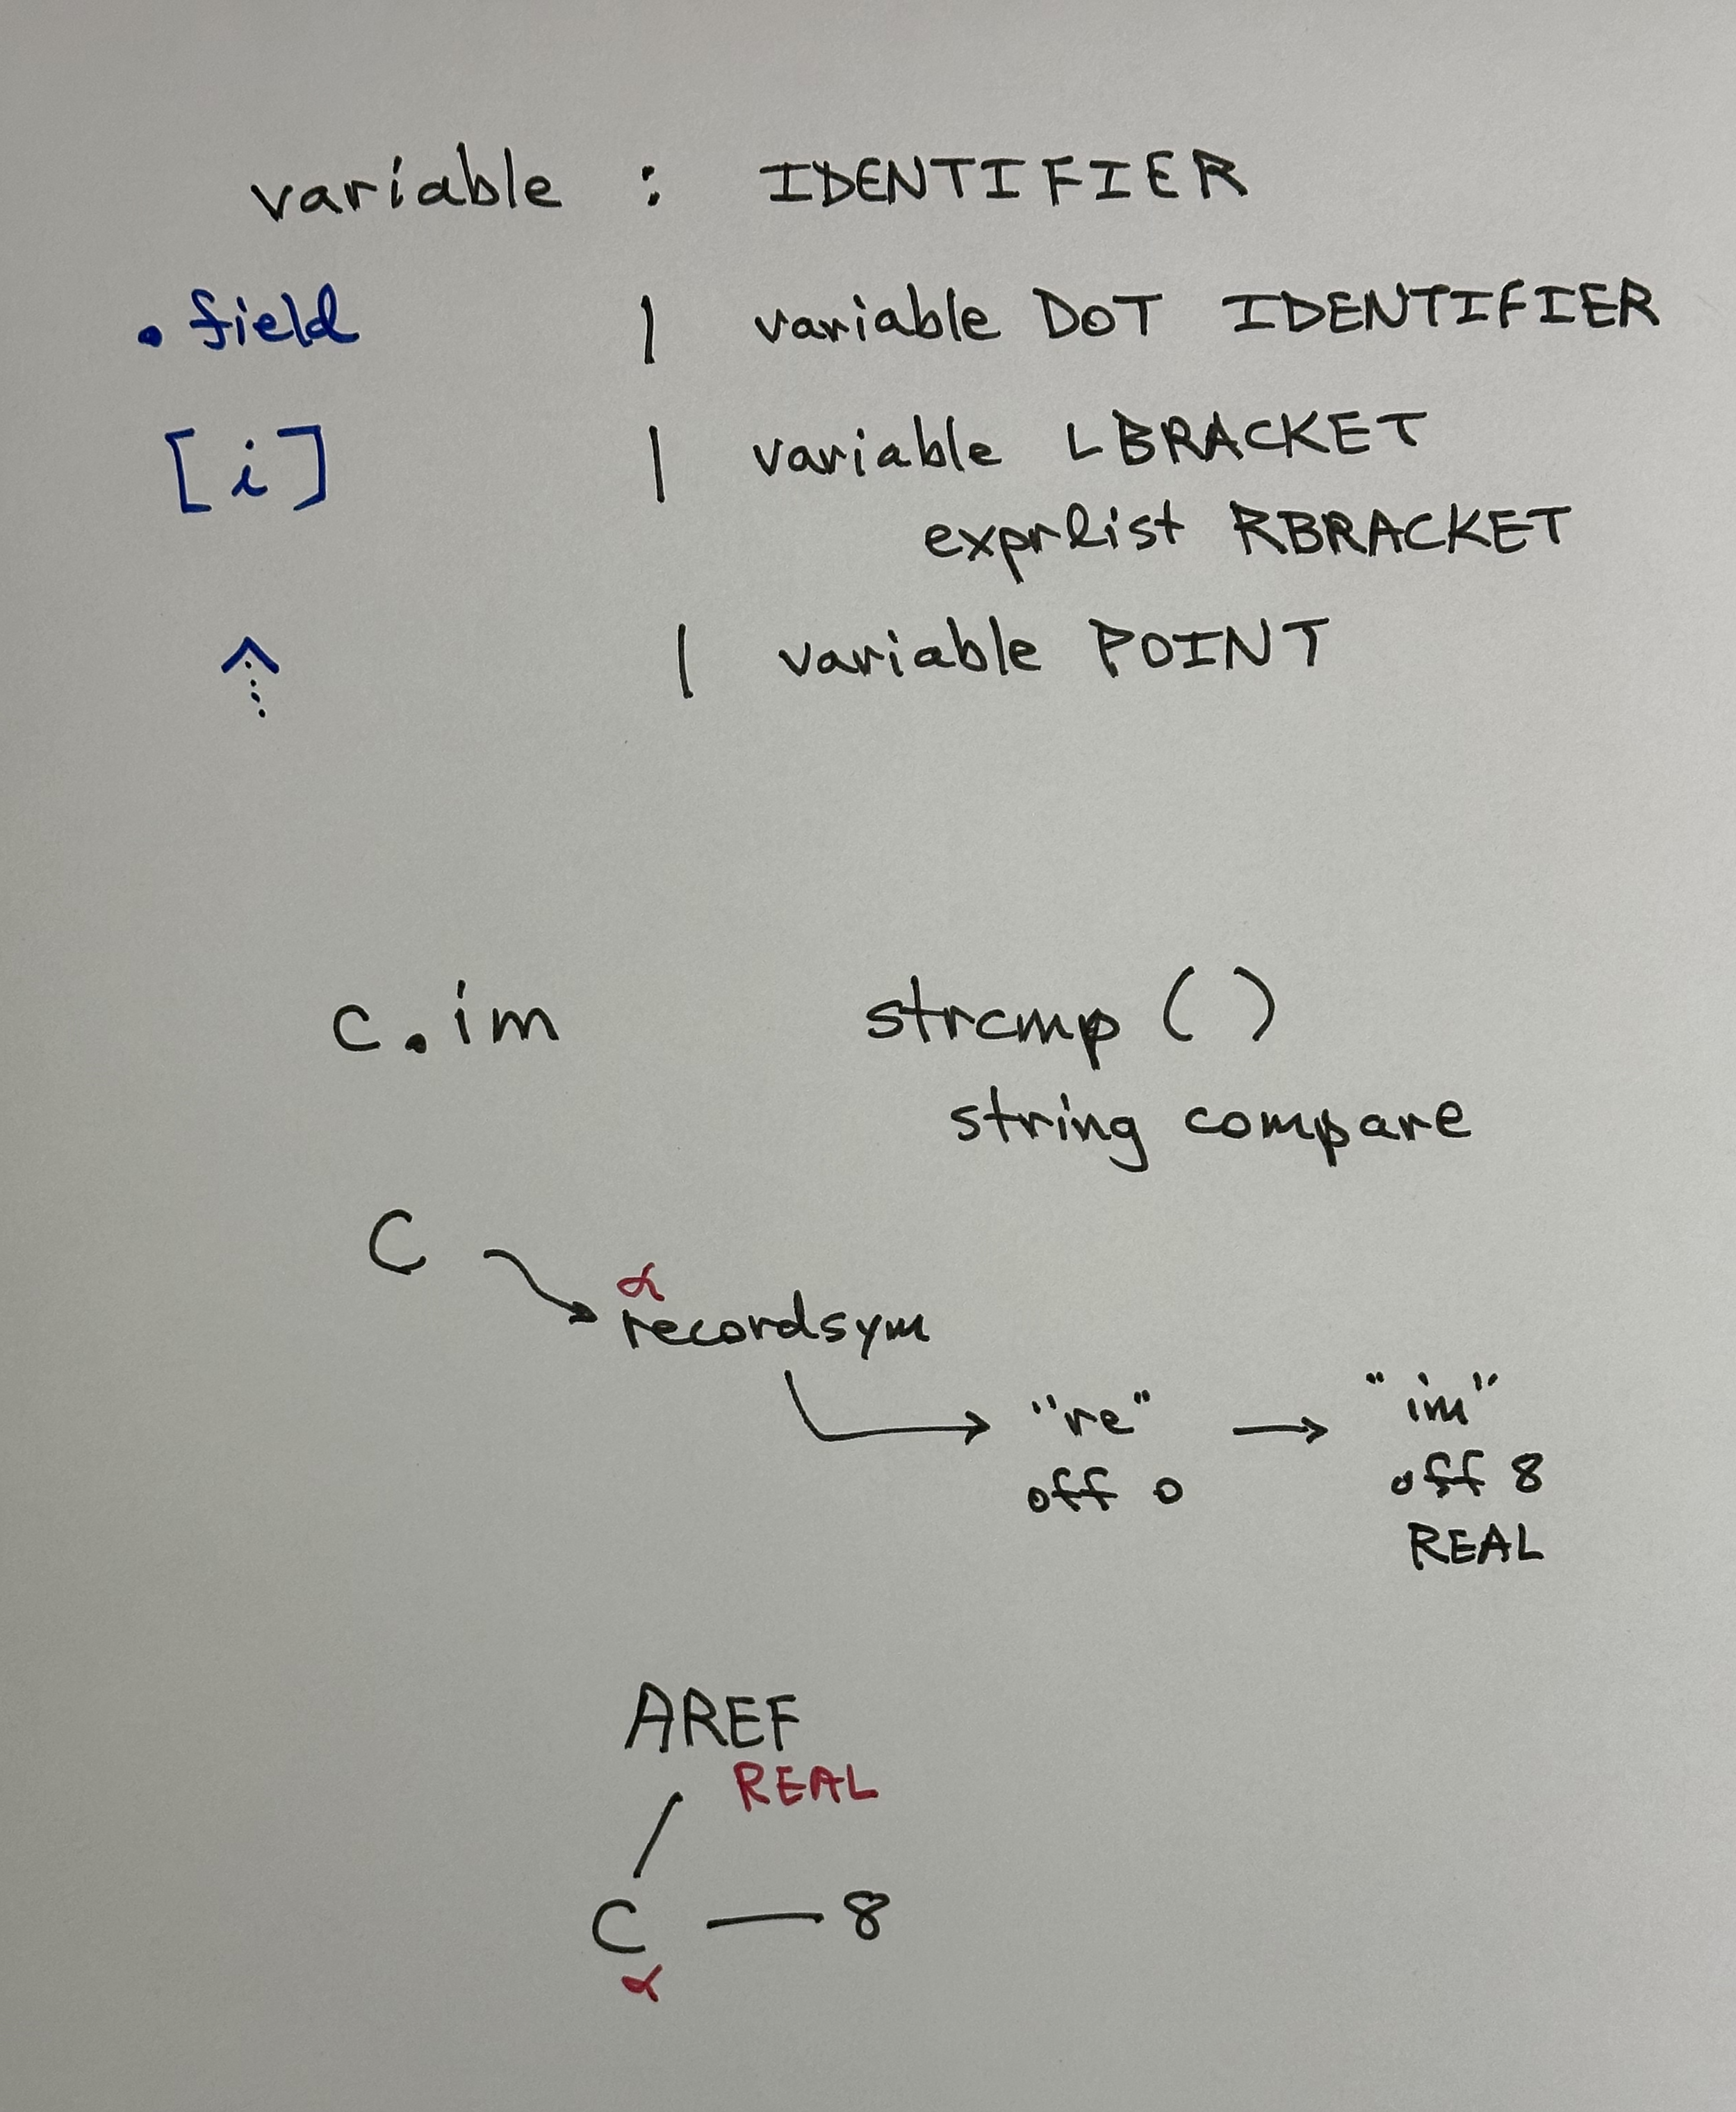 variable : IDENTIFIER
. field | variable DOT IDENTIFIER
[i] | variable LBRACKET
exprlist RBRACKET
^ | variable POINT
c.im strcmp ( )
string compare
C
α
recordsym
"re" → "im"
off 0 off 8
REAL
AREF
REAL
C — 8
α